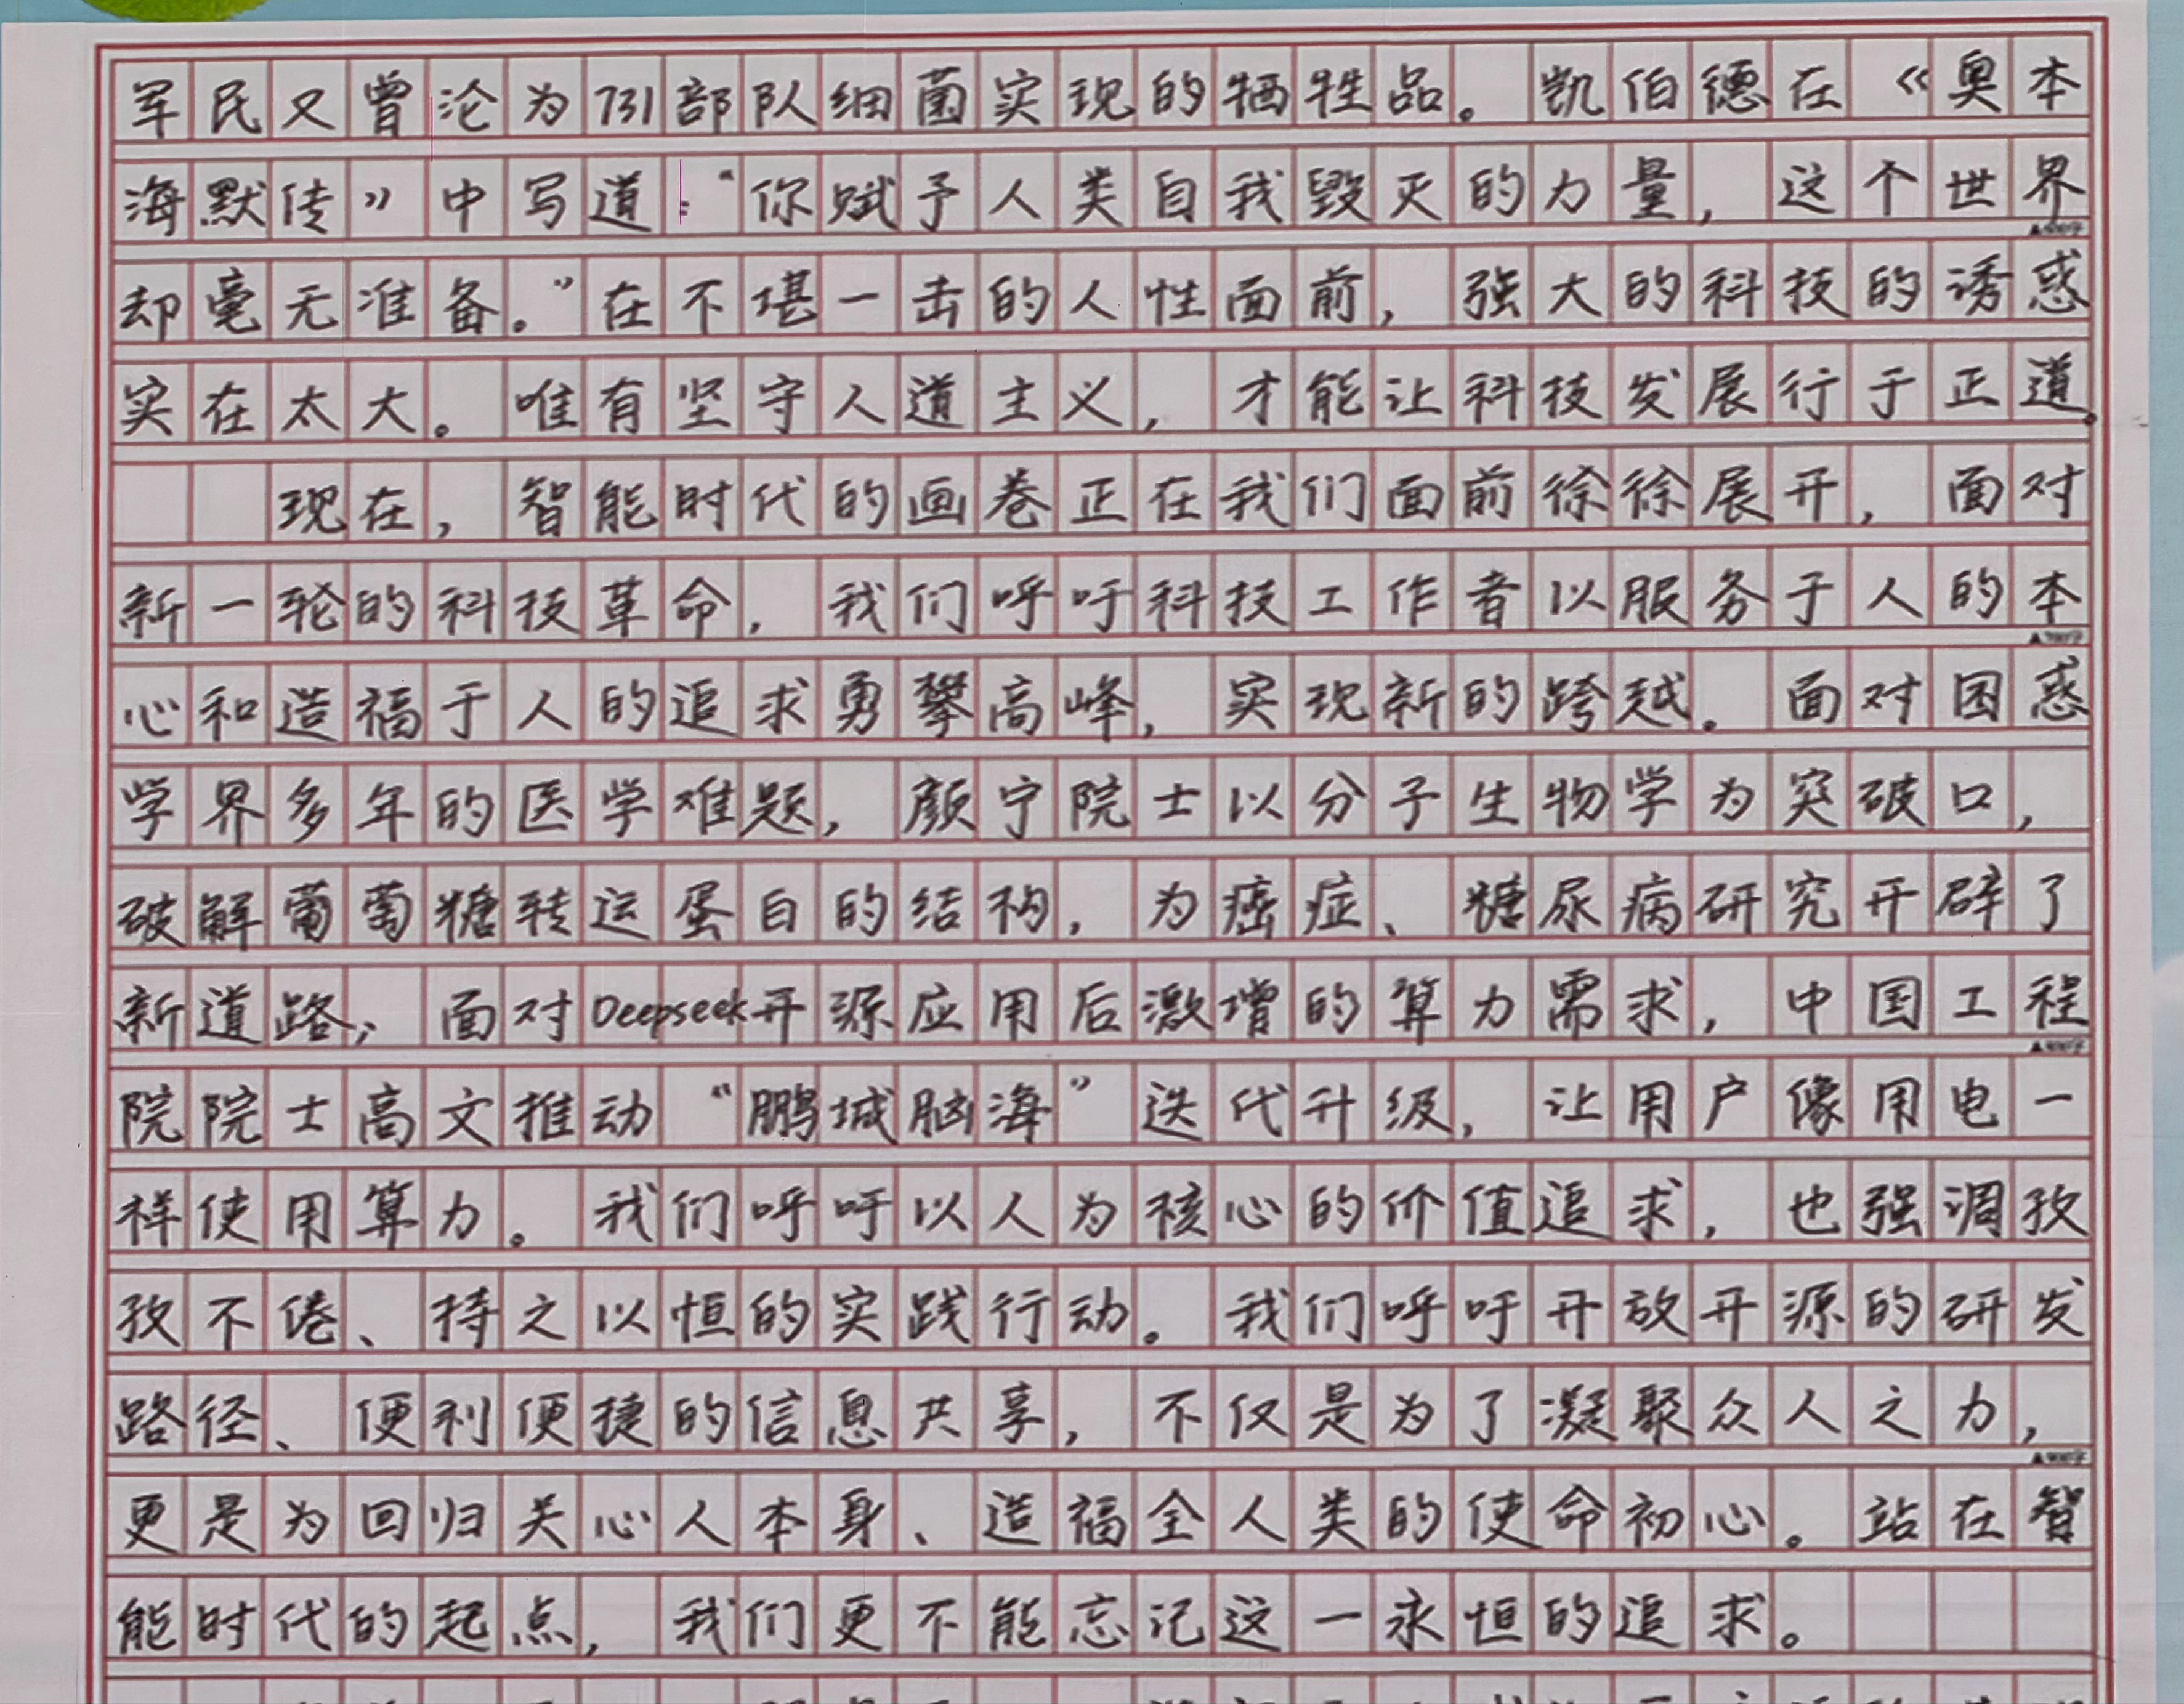 军民又曾沦为731部队细菌实现的牺牲品。凯伯德在《奥本
海默传》中写道:“你赋予人类自我毁灭的力量,这个世界
却毫无准备。”在不堪一击的人性面前,强大的科技的诱惑
实在太大。唯有坚守人道主义,才能让科技发展行于正道。
现在,智能时代的画卷正在我们面前徐徐展开,面对
新一轮的科技革命,我们呼吁科技工作者以服务于人的本
心和造福于人的追求勇攀高峰,实现新的跨越。面对困惑
学界多年的医学难题,颜宁院士以分子生物学为突破口,
破解葡萄糖转运蛋白的结构,为癌症、糖尿病研究开辟了
新道路;面对Deepseek开源应用后激增的算力需求,中国工程
院院士高文推动“鹏城脑海”迭代升级,让用户像用电一
样使用算力。我们呼吁以人为核心的价值追求,也强调孜
孜不倦、持之以恒的实践行动。我们呼吁开放开源的研发
路径、便利便捷的信息共享,不仅是为了凝聚众人之力,
更是为回归关心人本身、造福全人类的使命初心。站在智
能时代的起点,我们更不能忘记这一永恒的追求。